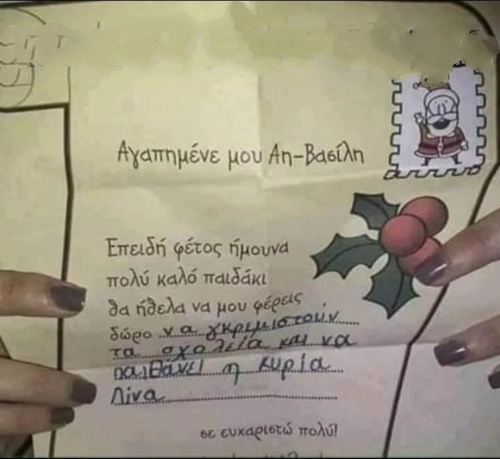 Αγαπημένε μου Αη-Βασίλη
Επειδή φέτος ήμουνα
πολύ καλό παιδάκι
θα ήθελα να μου φέρεις
δώρο να γκριμιστούν
τα σχολεία και να
παιθάνει η κυρία
Λίνα
σε ευχαριστώ πολύ!